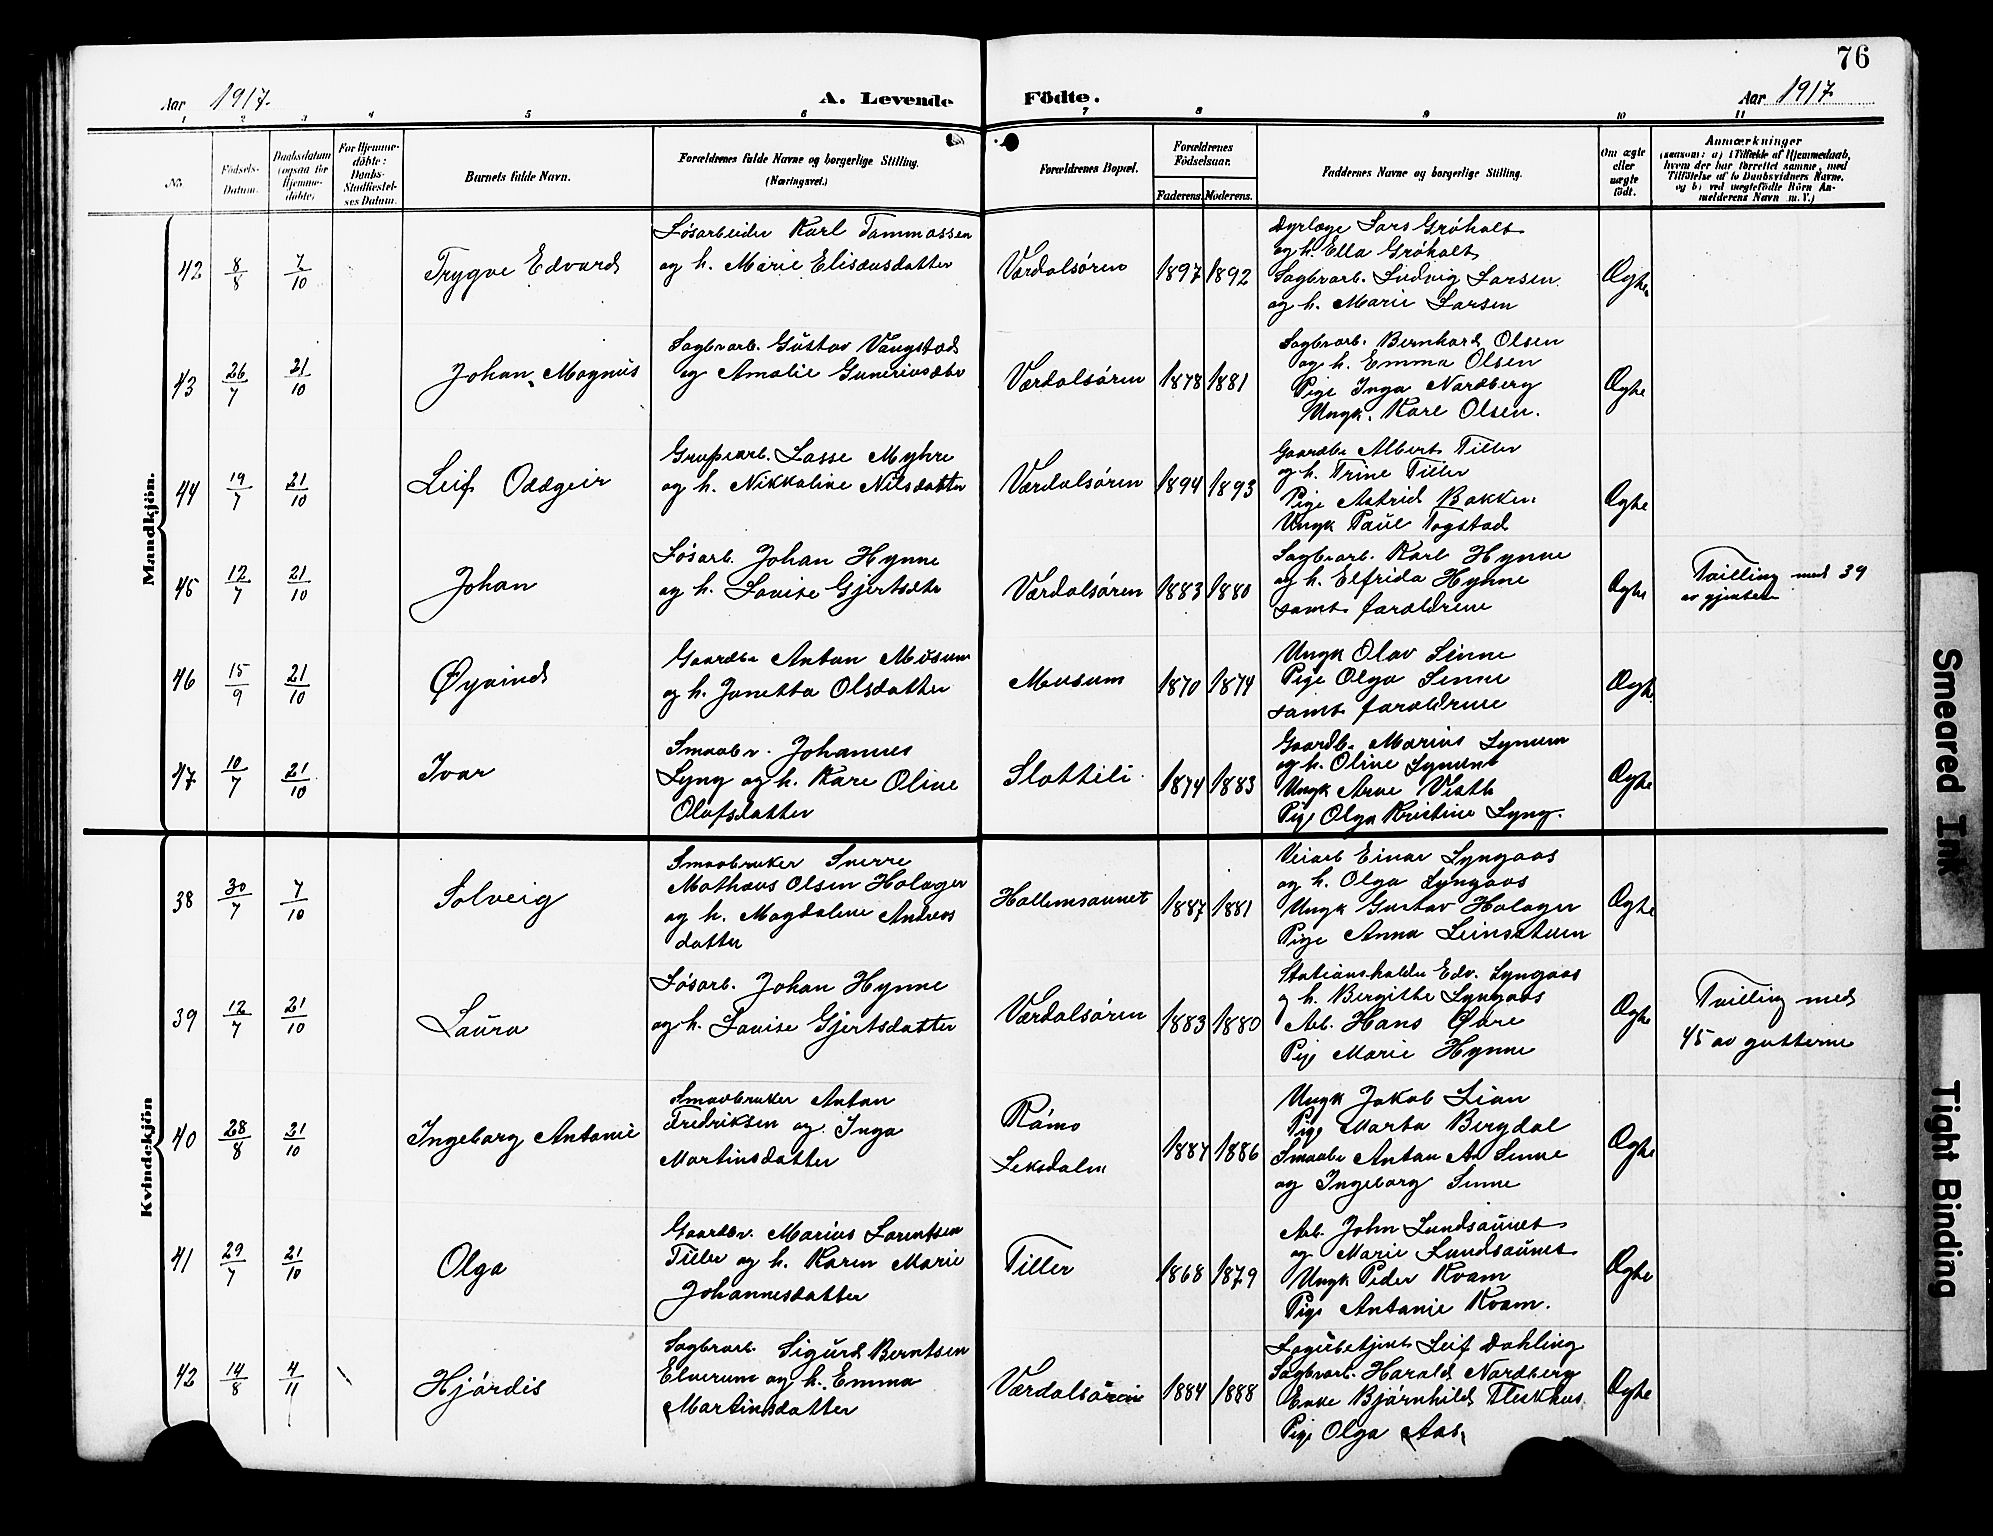 76
Aar 1917.
A. Levende Födte.
Aar 1917
1 2 3 4 5 6 7 8 9 10 11
No.
Födsels-Datum.
Daabsdatum (ogsaa for Hjemme-döbte)
For Hjemme-döbte: Daabs-Stadfæstel-ses Datum.
Barnets fulde Navn.
Forældrenes fulde Navne og borgerlige Stilling. (Næringsvei.)
Forældrenes Bopæl.
Forældrenes Födselsaar.
Faderens. Moderens.
Faddernes Navne og borgerlige Stilling.
Om ægte eller uægte födt.
Anmærkninger
(saasom: a) i Tilfælde af Hjemmedaab, hvem der har forrettet samme, med Tilföielse af to Daabsvidners Navne, og b) ved uægtefödte Börn An-melderens Navn m. V.)
Mandkjön.
42 8/8 7/10 Trygve Edvard
Løsarbeider Karl Tommassen
og h. Marie Elisæusdatter
Værdalsøren 1897 1892
Dyrlæge Lars Grøholt
og h. Ella Grøholt
Sagbrarb. Ludvig Larsen
og h. Marie Larsen
Ægte
43 26/7 21/10 Johan Magnus
Sagbrarb. Gustav Vangstad
og Amalie Guneriusdtr
Værdalsøren 1878 1881
Sagbrarb. Bernhard Olsen
og h. Emma Olsen
Pige Inga Nordberg
Ungk. Karl Olsen.
Ægte
44 19/7 21/10 Leif Oddgeir
Grubearb. Lasse Myhre
og h. Nikkoline Nilsdatter
Værdalsøren 1894 1893
Gaardbr Albert Tiller
og h. Trine Tiller
Pige Astrid Bakken
Ungk Paul Togstad
Ægte
45 12/7 21/10 Johan
Løsarb. Johan Hynne
og h. Lovise Gjertsdtr
Værdalsøren 1883 1880
Sagbrarb. Karl Hynne
og h. Elfrida Hynne
samt forældrene
Ægte
Tvilling med 39
av gjentene
46 15/9 21/10 Øyvind
Gaardbr Anton Musum
og h. Janetta Olsdatter
Musum 1870 1874
Ungk Olav Sinne
Pige Olga Sinne
samt forældrene
Ægte
47 10/7 21/10 Ivar
Smaabr. Johannes
Lyng og h. Kare Oline
Olafsdatter
Slottili 1874 1883
Gaardb. Marius Lynum
og h. Oline Lynum
Ungk Arne Vistb
Pige Olga Kristine Lyng.
Ægte
Kvindekjön
38 30/7 7/10 Solveig
Smaabruker Sverre
Mathæus Olsen Holager
og h. Magdalene Andreas
datter
Hallemsaunet 1887 1881
Veiarb Einar Lyngaas
og h. Olga Lyngaas
Ungk Gustav Holager
Pige Anna Leinsatuen
Ægte
39 12/7 21/10 Laura
Løsarb. Johan Hynne
og h. Lovise Gjertsdatter
Værdalsøren 1883 1880
Stationsholder Edv. Lyngaas
og h. Bergithe Lyngaas
Arb. Hans Øvre
Pige Marie Hynne
Ægte
Tvilling med
45 av gutterne
40 28/8 21/10 Ingeborg Antonie
Smaabruker Anton
Fredriksen og Inga
Martinsdatter
Rámo
Leksdalen
1887 1886
Ungk Jakob Lian
Pige Marta Bergdal
Smaabr Anton A. Sinne
og Ingeborg Sinne
Ægte
41 29/7 21/10 Olga
Gaardbr. Marius Lorntsen
Tiller og h. Karen Marie
Johannesdatter
Tiller 1868 1879
Arb. John Lundsaunet
og Marie Lundsaunet
Ungk Peder Kvam
Pige Antonie Kvam.
Ægte
42 14/8 4/11 Hjórdis
Sagbrarb Sigurd Berntsen
Elverum og h. Emma
Martinsdatter
Værdalsøren 1884 1888
Lagerbetjent Leif Dahling
Sagbrarb. Harald Nordberg
Enke Bjørnhild Fleskhus
Pige Olga Aas
Ægte
Smeared Ink
Tight Binding